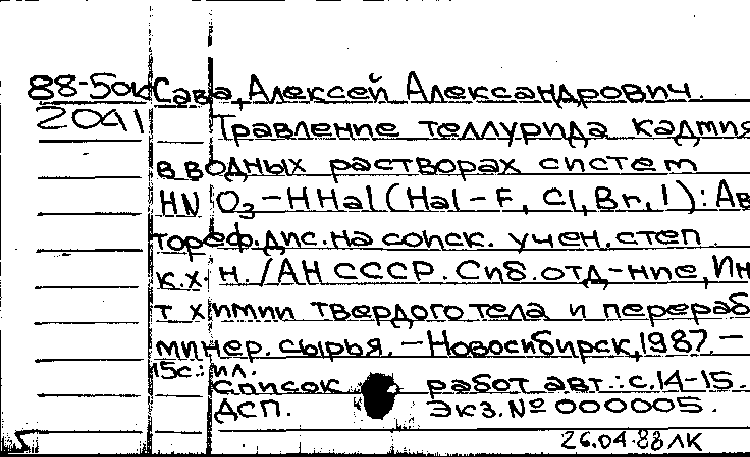 88-5ок Сава, Алексей Александрович.
2041 Травление теллурида кадмия
в водных растворах систем
HNO₃-HHal (Hal-F, Cl, Br, I): Ав
тореф. дис. на соиск. учен. степ.
к.х.н. /АН СССР. Сиб. отд-ние, Ин
т химии твердого тела и перераб
минер. сырья. - Новосибирск, 1987. -
15с.: ил.
Список работ авт.: с.14-15.
ДСП. Экз. № 000005.
26.04.88 ЛК